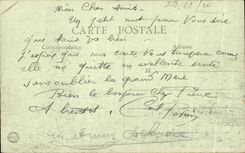 28-11/16
Bien Cher Amis.
Un petit mot pour vous dire
CARTE POSTALE
que tout va bien
Correspondance
Adresse
J'espère que ma carte vous trouvera comme
elle me quitte en excellente santé
sans oublier la grand Mère
Bien le bonjour chez Pierre
A bientôt,